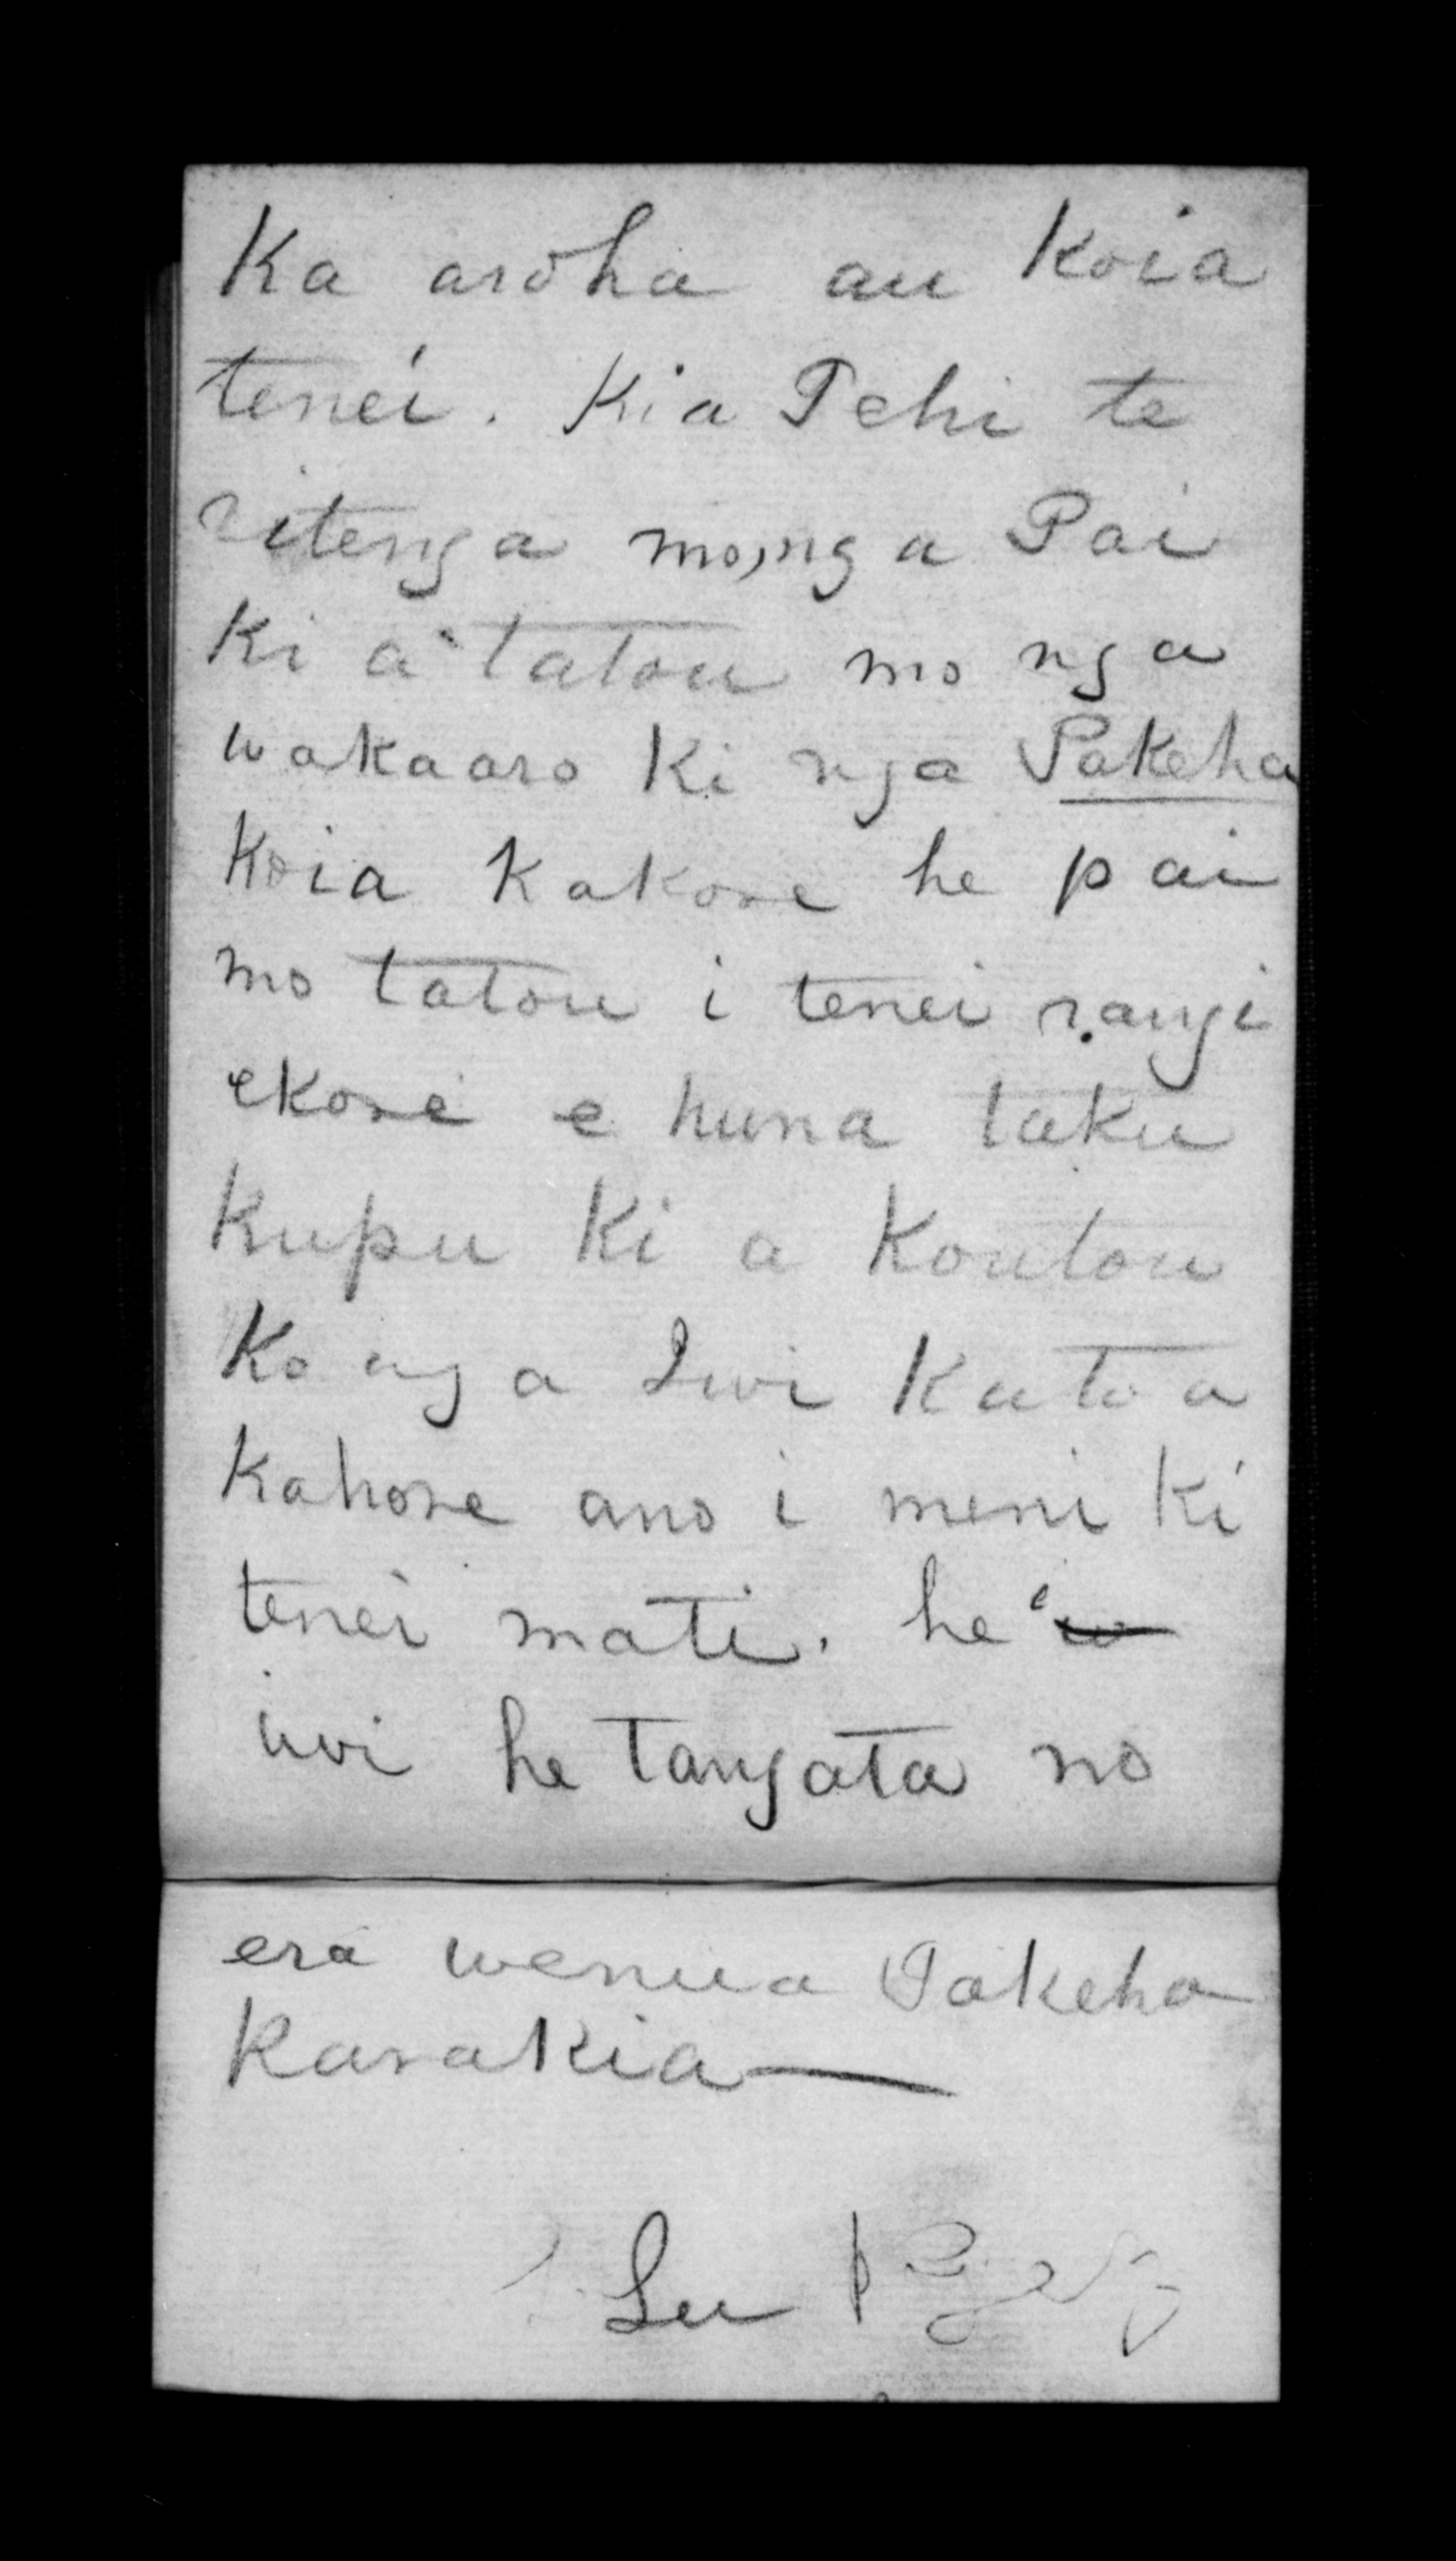 Ka aroha au Koia
tenei. Kia Tehi te
ritenga mo, nga Pai
Ki a tatou mo nga
wakaaro Ki nga Pakeha
Koia Kakore he pai
mo tatou i tenei rangi
ekore e huna taku
Kupu Ki a Koutou
Ko nga Iwi Katoa
Kahore ano i meni Ki
tenei mati. he
iwi he tangata no
era wenua Pakeha
Karakia—